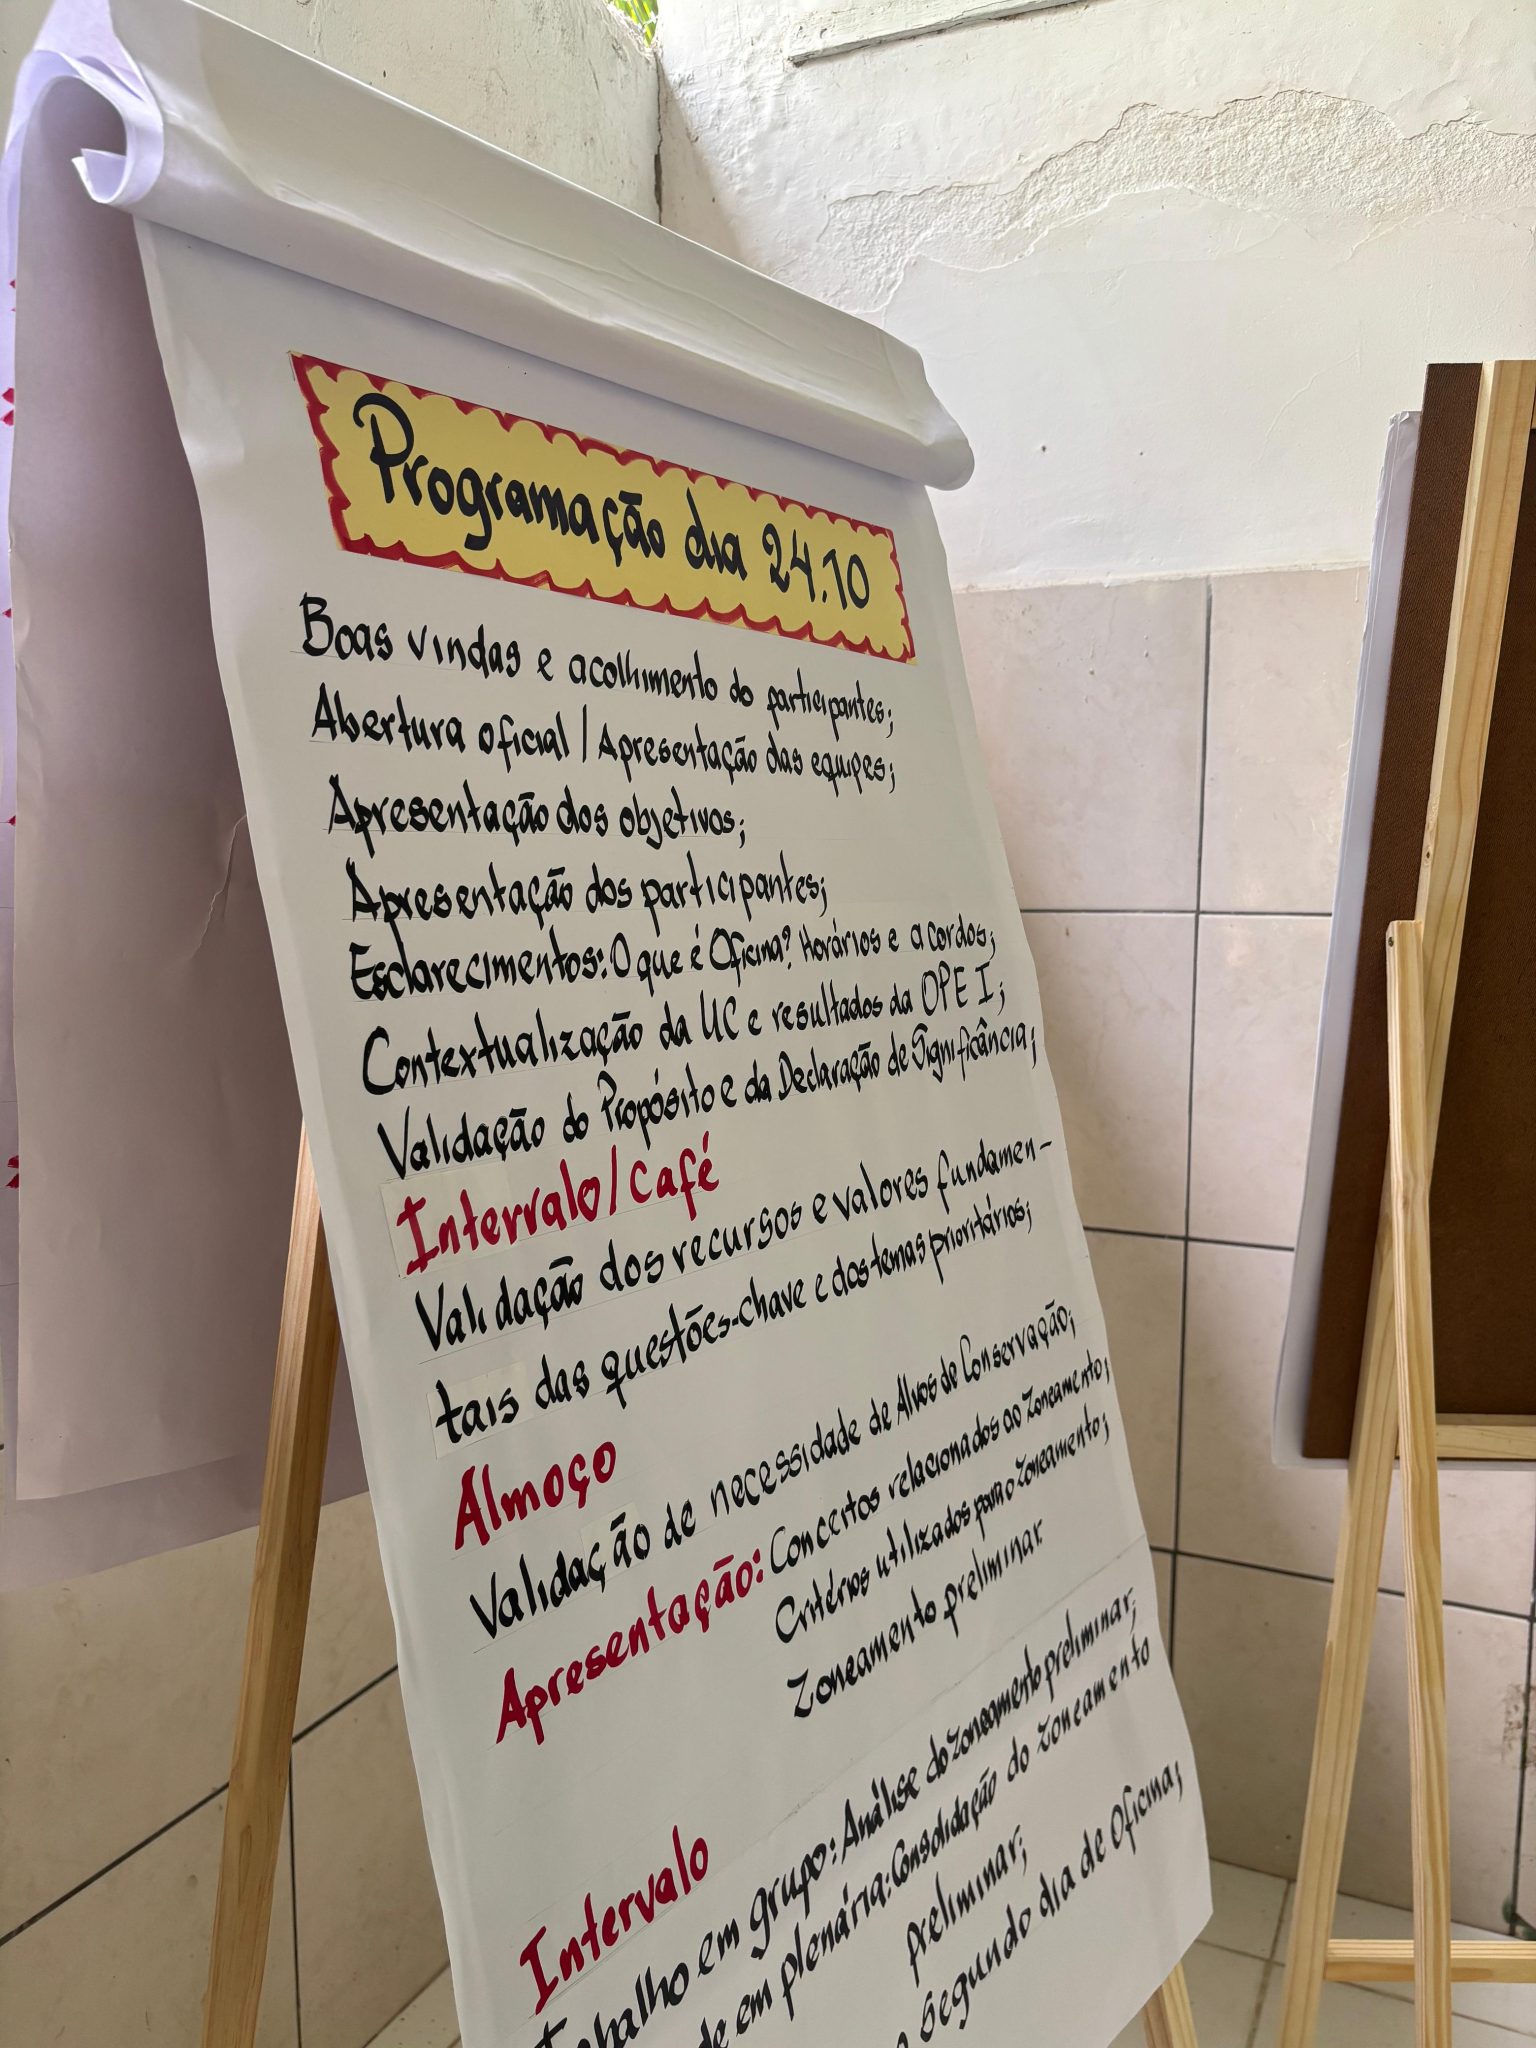 Programação dia 24.10
Boas vindas e acolhimento do participantes;
Abertura oficial / Apresentação das equipes;
Apresentação dos objetivos;
Apresentação dos participantes;
Esclarecimentos: O que é Oficina? Horários e acordos;
Contextualização da UC e resultados da OPE I;
Validação do Propósito e da Declaração de Significância;
Intervalo/Café
Validação dos recursos e valores fundamen-
tais das questões-chave e dos temas prioritários;
Almoço
Validação de necessidade de Alvos de Conservação;
Apresentação: Concertos relacionados ao Zoneamento;
Critérios utilizados para o Zoneamento;
Zoneamento preliminar
Intervalo
Trabalho em grupo: Análise do zoneamento preliminar;
de em plenária: Consolidação do zoneamento
preliminar;
segundo dia de Oficina;